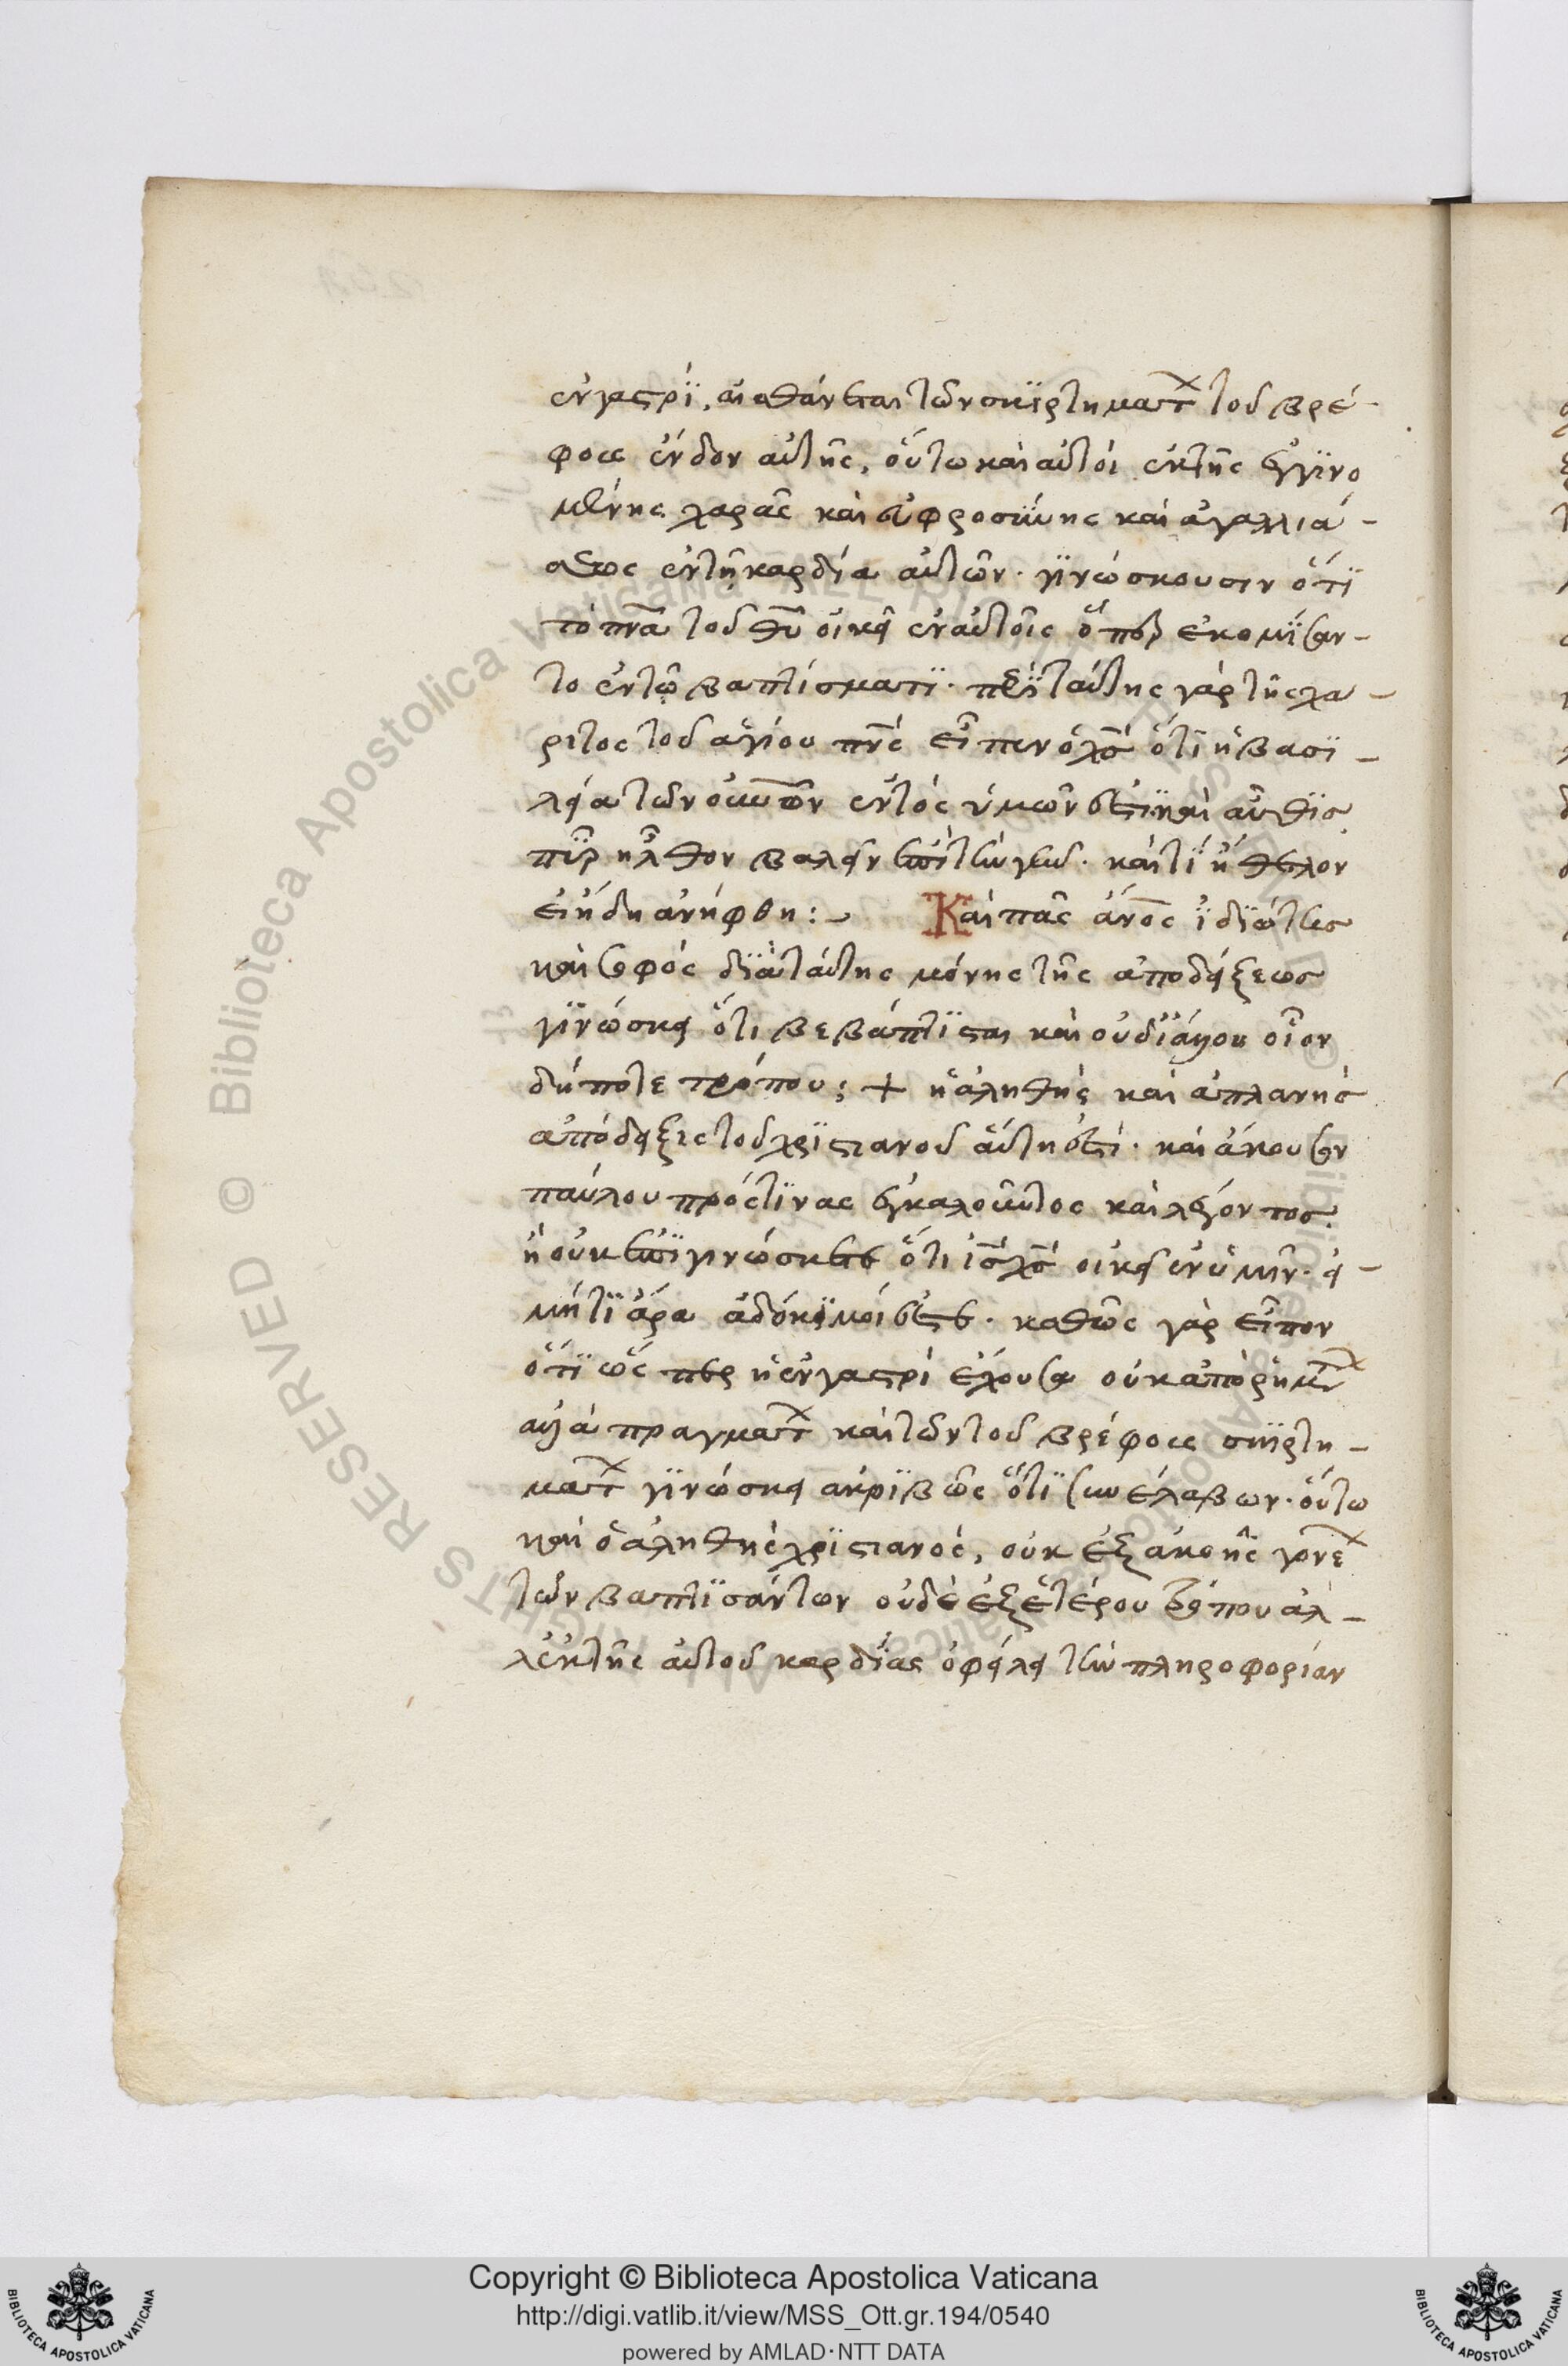 ἐν γαστρϊ, αἰσθάνεται τῶν σκϊρτημάτ τοῦ βρέ-
φους ἔνδον αὐτῆς, οὕτω καὶ αὐτοὶ ἐκ τῆς ἐγγϊνο
μένης χαρᾶς καὶ εὐφροσύνης καὶ ἀγαλλιά-
σεως ἐν τῆ καρδία αὐτῶν· γϊνώσκουσιν ὅτϊ
τὸ πνᾶ τοῦ θῦ οἰκεῖ ἐν αὐτοῖς ὅπερ ἐκομϊσαν-
το ἐν τῷ βαπτίσματϊ· περὶ ταύτης γὰρ τῆς χά-
ριτος τοῦ ἁγίου πνς εἶπεν ὁ χς ὅτι ἡ βασϊ-
λεία τῶν οὐνῶν ἐντός ὑμῶν ἐστϊ καὶ αὖθϊς
πῦρ ἦλθον βαλεῖν ἐπὶ τὴν γῆν· καὶ τϊ ἤθελον
εἰ ἤδη ἀνήφθη:~ Καὶ πᾶς ἄνος ϊδϊώτης
καὶ σοφός δϊὰ ταύτης μόνης τῆς ἀποδείξεως
γϊνώσκει ὅτι βεβάπτϊσται καὶ οὐ δϊ' ἄλλου οἷον
δήποτε τρόπου; + ἡ ἀληθὴς καὶ ἀπλανὴς
ἀπόδειξις τοῦ χρϊστιανοῦ αὕτη ἐστὶ· καὶ ἄκουσον
παύλου πρός τϊνας ἐγκαλοῦντος καὶ λέγοντος.
ἢ οὐκ ἐπϊγινώσκετε ὅτι ις χς οἰκεῖ ἐν ὑμῖν· εἰ-
μήτϊ ἄρα ἀδόκϊμοί ἐστε· καθὼς γὰρ εἶπον
ὅτϊ ὥσπερ ἡ ἐν γαστρὶ ἔχουσα οὐκ ἀπὸ ῥημτ
ἀλλὰ πραγμάτ καὶ τῶν τοῦ βρέφους σκϊρτη-
μάτ γϊνώσκει ἀκρϊβῶς ὅτϊ συνέλαβων· οὕτω
καὶ ὁ ἀληθὴς χρϊστιανός, οὐκ ἐξ ἀκοῆς γονε
τῶν βαπτϊσάντων οὐδὲ ἐξ ἑτέρου τρόπου ἀλ-
λ' ἐκ τῆς αὐτοῦ καρδίας ὀφείλει τὴν πληροφορίαν
Copyright © Biblioteca Apostolica Vaticana
http://digi.vatlib.it/view/MSS_Ott.gr.194/0540
powered by AMLAD·NTT DATA